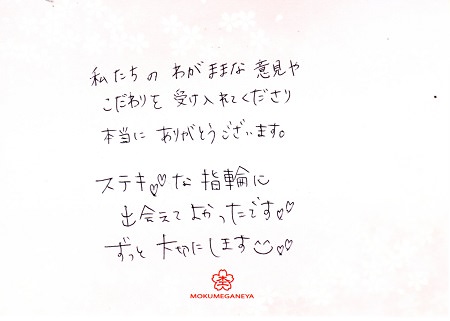 私たちの わがままな 意見や
こだわりを 受け入れてくださり
本当に ありがとうございます。
ステキ♡♡な 指輪に
出会えて よかったです♡♡
ずっと 大切にします☺♡♡
MOKUMEGANEYA